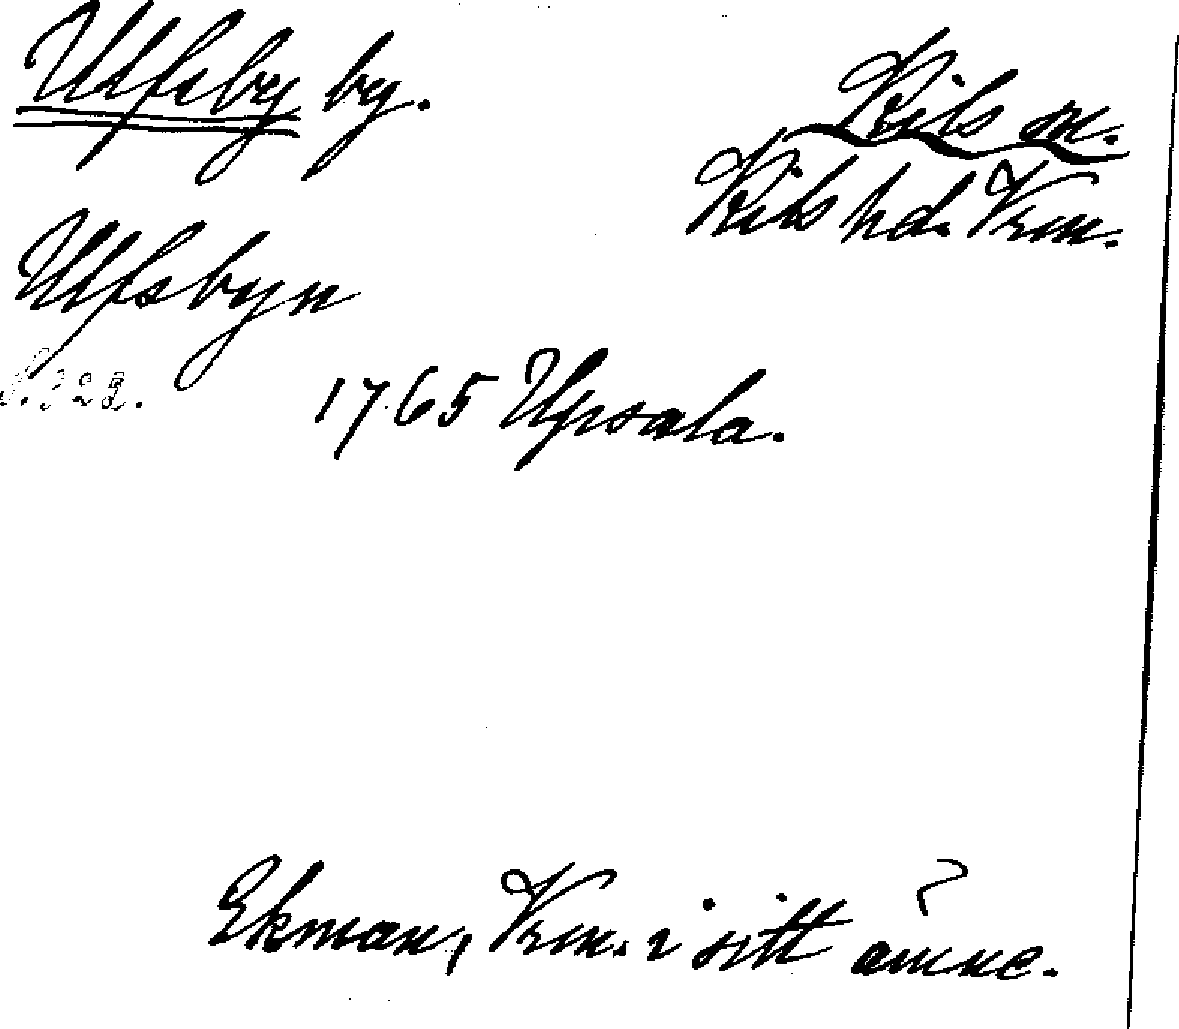 Ulfsby by.
Kils sn.
Kils hd. Vrm.
Ulfsbyn
S. 328.
1765 Upsala.
Ekman, Vrm. i sitt ämne.